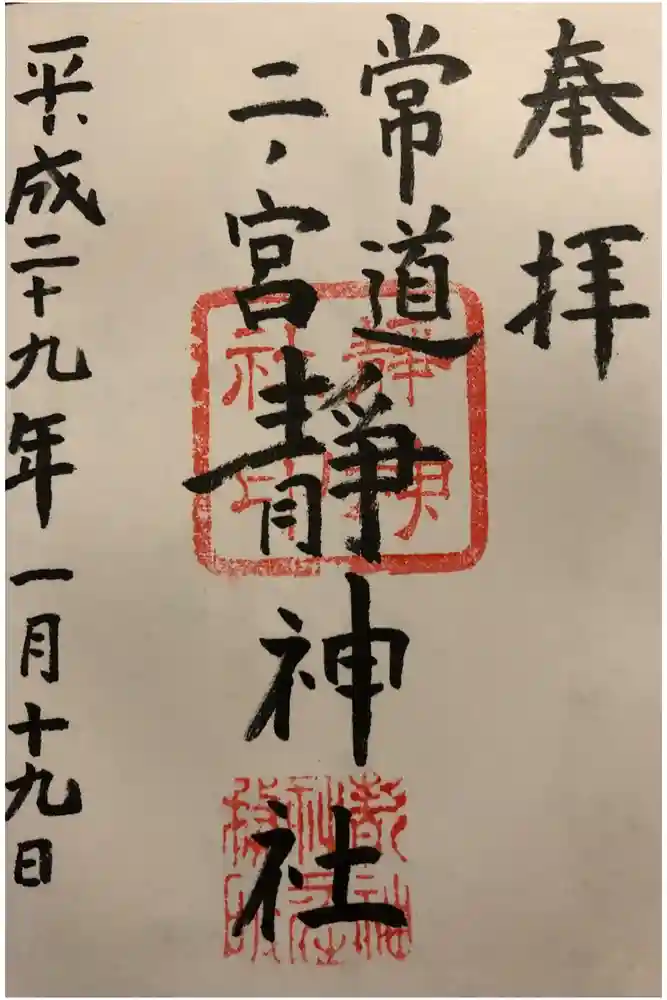 奉拝
常道
二ノ宮
靜神社
平成二十九年一月十九日